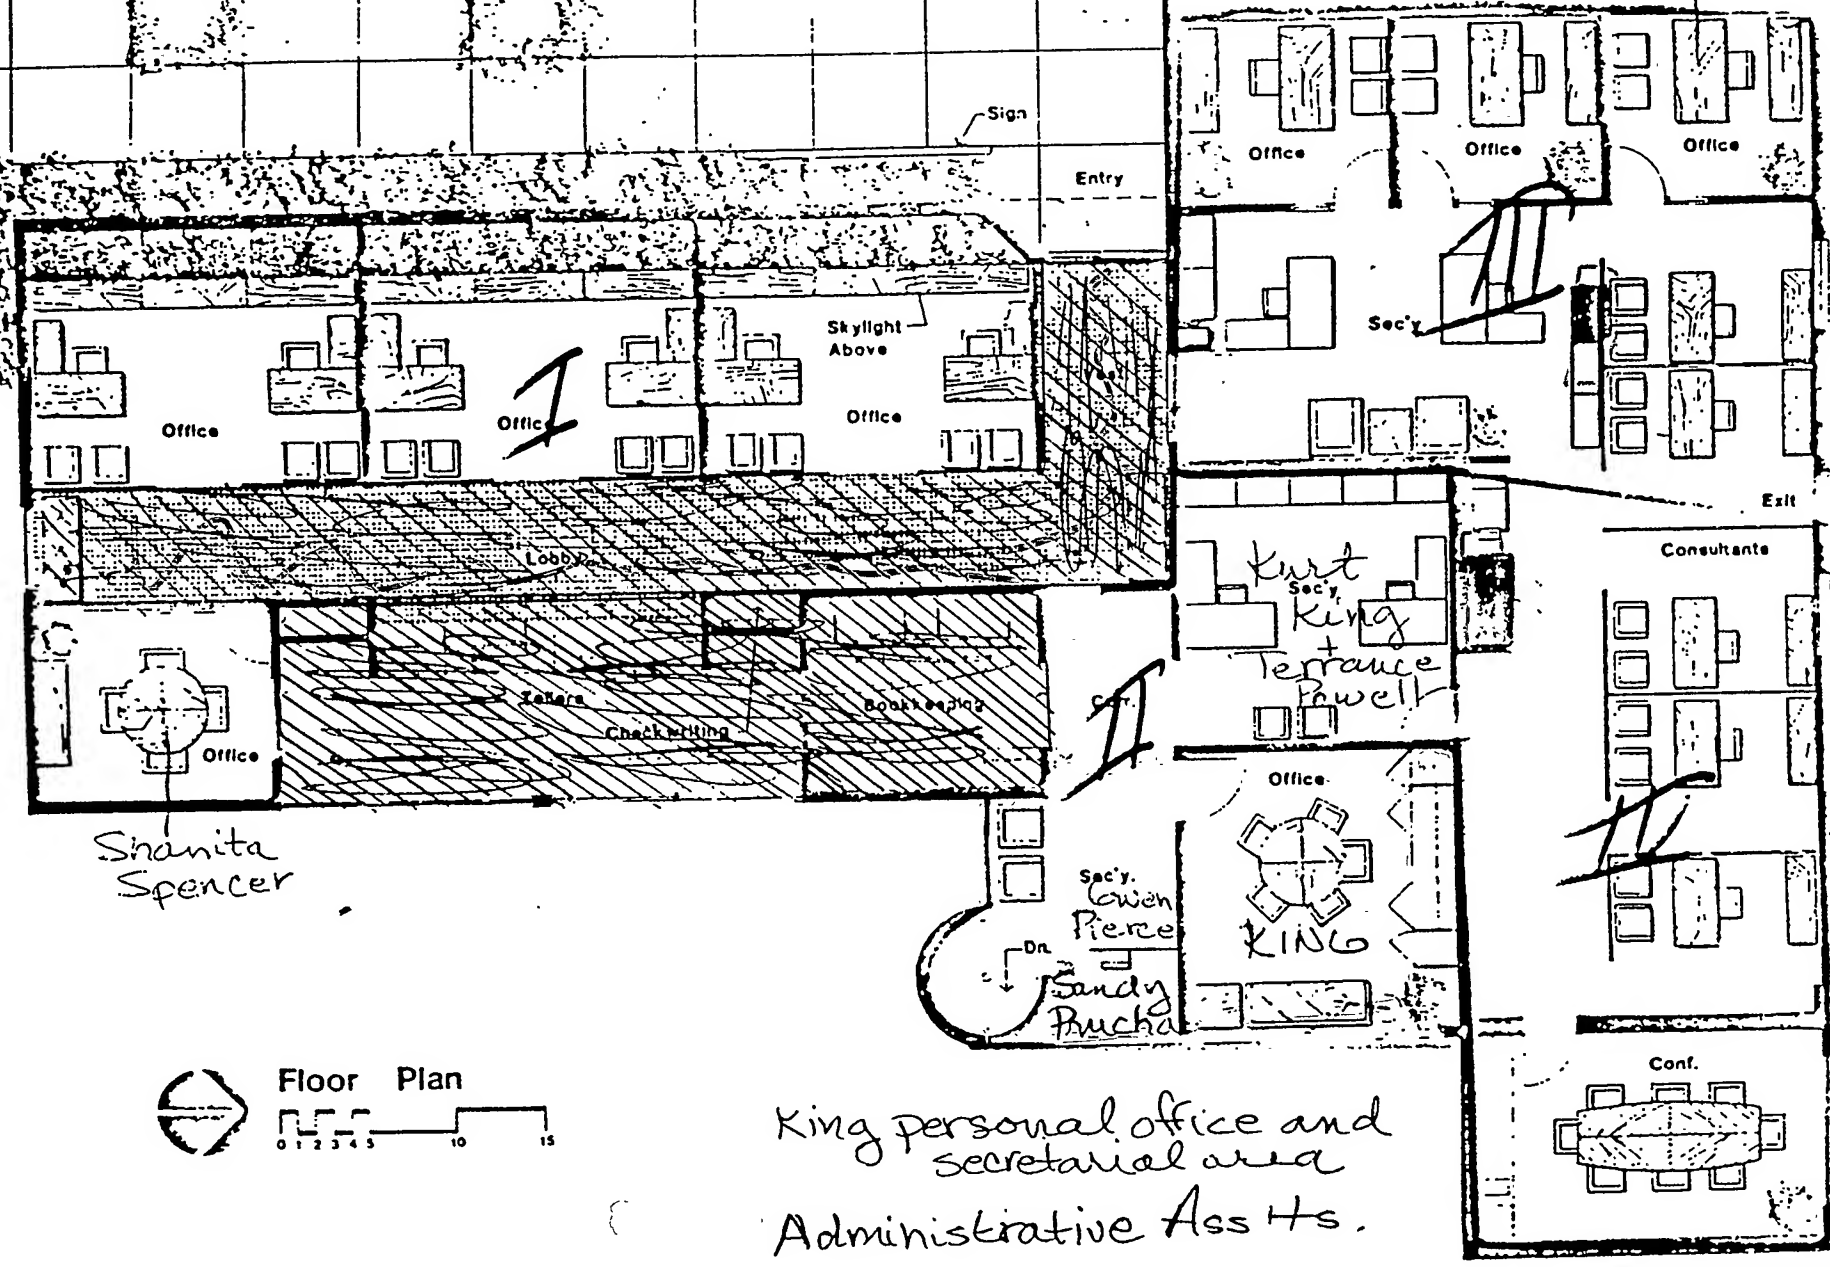 Sign
Entry
Office
Office
Office
Skylight
Above
Sec'y
Office
Office
Office
I
III
Exit
Consultants
Lobby
Kurt
Sec'y.
King
+
Terrance
Powell
Tellers
Checkwriting
Bookkeeping
Cor.
II
Office
Office
Shanita
Spencer
Sec'y.
Gwen
Pierce
KING
Dn.
Sandy
Prucha
Conf.
Floor Plan
0 1 2 3 4 5 10 15
King personal office and
secretarial area
Administrative Ass'ts.